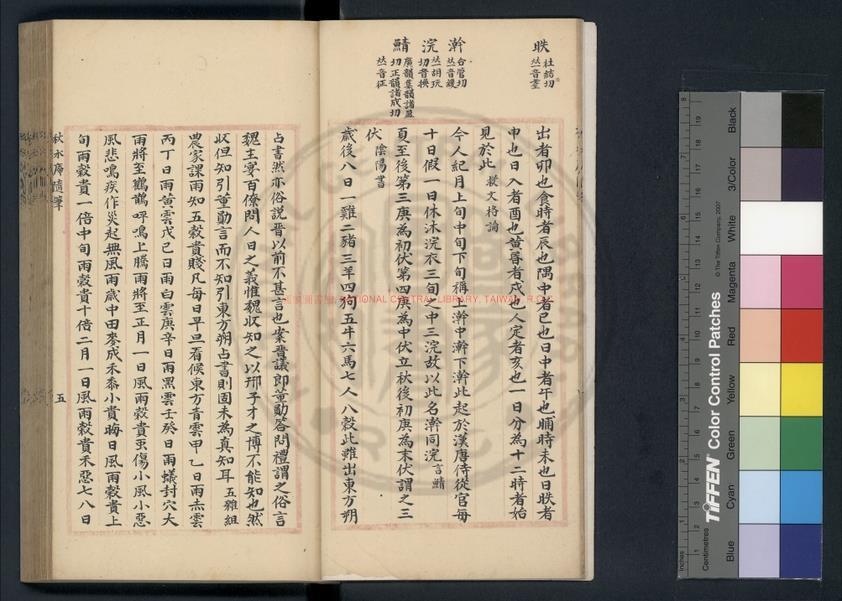 昳
杜結切
𠀤音垤
澣
合管切
𠀤音緩
浣
𠀤胡玩
切音換
鯖
廣韻集韻諸盈
切正韻諸成切
𠀤音征
出者卯也食時者辰也隅中者巳也日中者午也晡時未也日昳者
申也日入者酉也黃昏者戌也人定者亥也一日分為十二時者始
見於此 藜文格論
今人紀月上旬中旬下旬稱上澣中澣下澣此起於漢唐侍從官每
十日假一日休沐浣衣三旬之中三浣故以此名澣同浣 言鯖
夏至後第三庚為初伏第四庚為中伏立秋後初庚為末伏謂之三
伏 陰陽書
歲後八日一雞二豬三羊四狗五牛六馬七人八穀此雖出東方朔
占書然亦俗說晉以前不甚言也案晉議郎董勛答問禮謂之俗言
魏主宴百僚問人日之義惟魏收知之以邢子才之博不能知也然
收但知引董勛言而不知引東方朔占書則固未為真知耳 五雜組
農家課雨知五穀貴賤凡每日平旦看候東方青雲甲乙日雨赤雲
丙丁日雨黃雲戊己日雨白雲庚辛日雨黑雲壬癸日雨蟻封穴大
雨將至鸛鶴呼鳴上騰雨將至正月一日風雨穀貴蟲傷小風小惡
風悲鳴疾作災起無風雨歲中田麥成禾黍小貴晦日風雨穀貴上
旬雨穀貴一倍中旬雨穀貴十倍二月一日風雨穀貴禾惡七八日
秋水庵隨筆
五
NATIONAL CENTRAL LIBRARY, TAIWAN, R.O.C.
TIFFEN Color Control Patches
© The Tiffen Company, 2007
Inches
Centimetres
Blue
Cyan
Green
Yellow
Red
Magenta
White
3/Color
Black